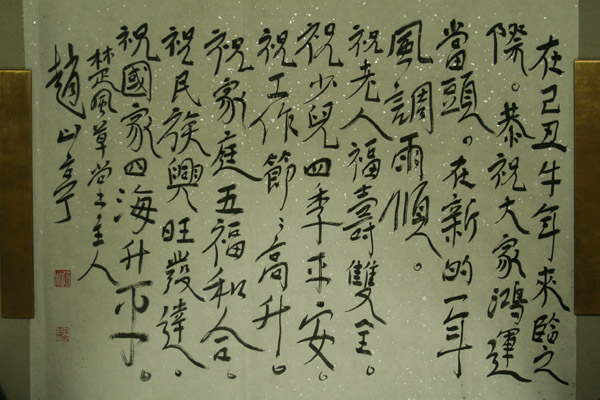 在己丑牛年來臨之
際。恭祝大家鴻運
當頭。在新的一年
風調雨順。
祝老人福壽雙全。
祝少兒四季平安。
祝工作節々高升。
祝家庭五福和合。
祝民族興旺發達。
祝國家四海升平。
風草堂主人
趙山亭